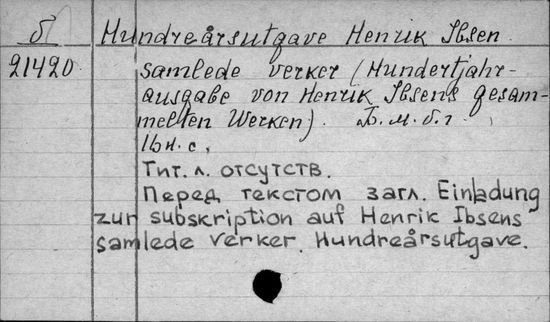 б Hundreårsutgave Henrik Ibsen
21420 samlede verker (Hundertjahr-
ausgabe von Henrik Ibsens gesam-
melten Werken). Б. м. б. г.
16н. с.,
Тит. л. отсутств.
Перед текстом загл. Einladung
zur subskription auf Henrik Ibsens
samlede verker. Hundreårsutgave.